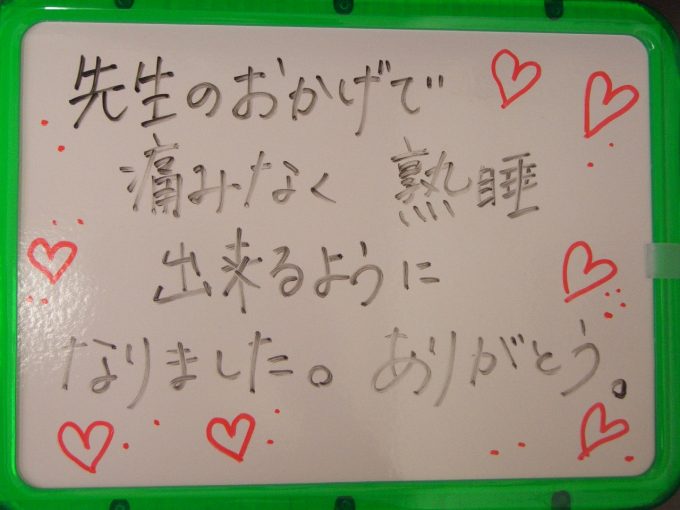 先生のおかげで
痛みなく 熟睡
出来るように
なりました。ありがとう。